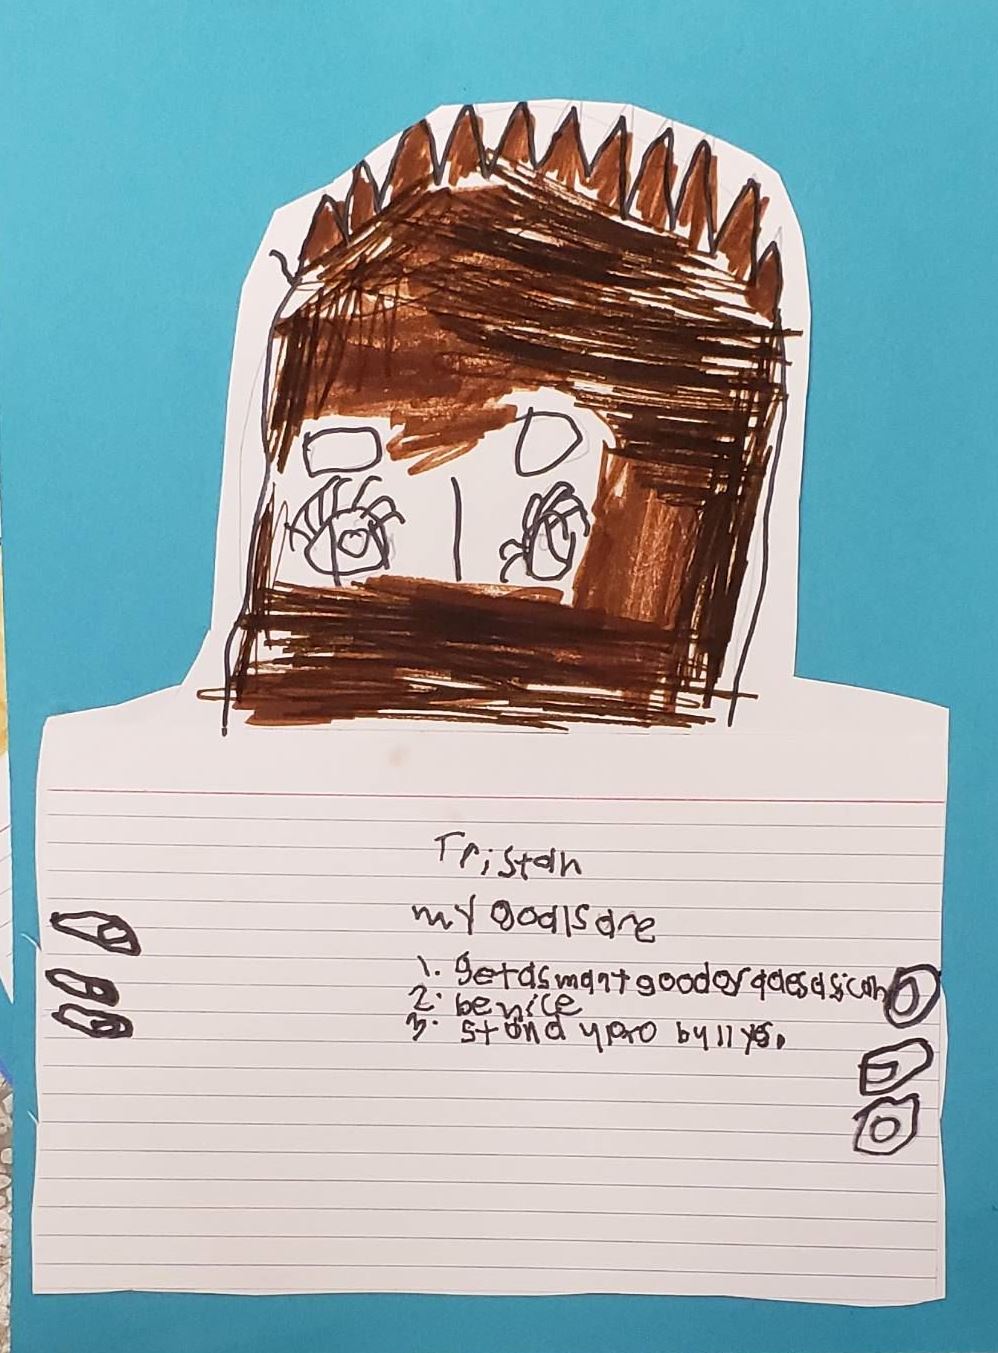 Tristan
my goals are
1. get as mant good grades as i can
2. be nice
3. stand up to bullys.